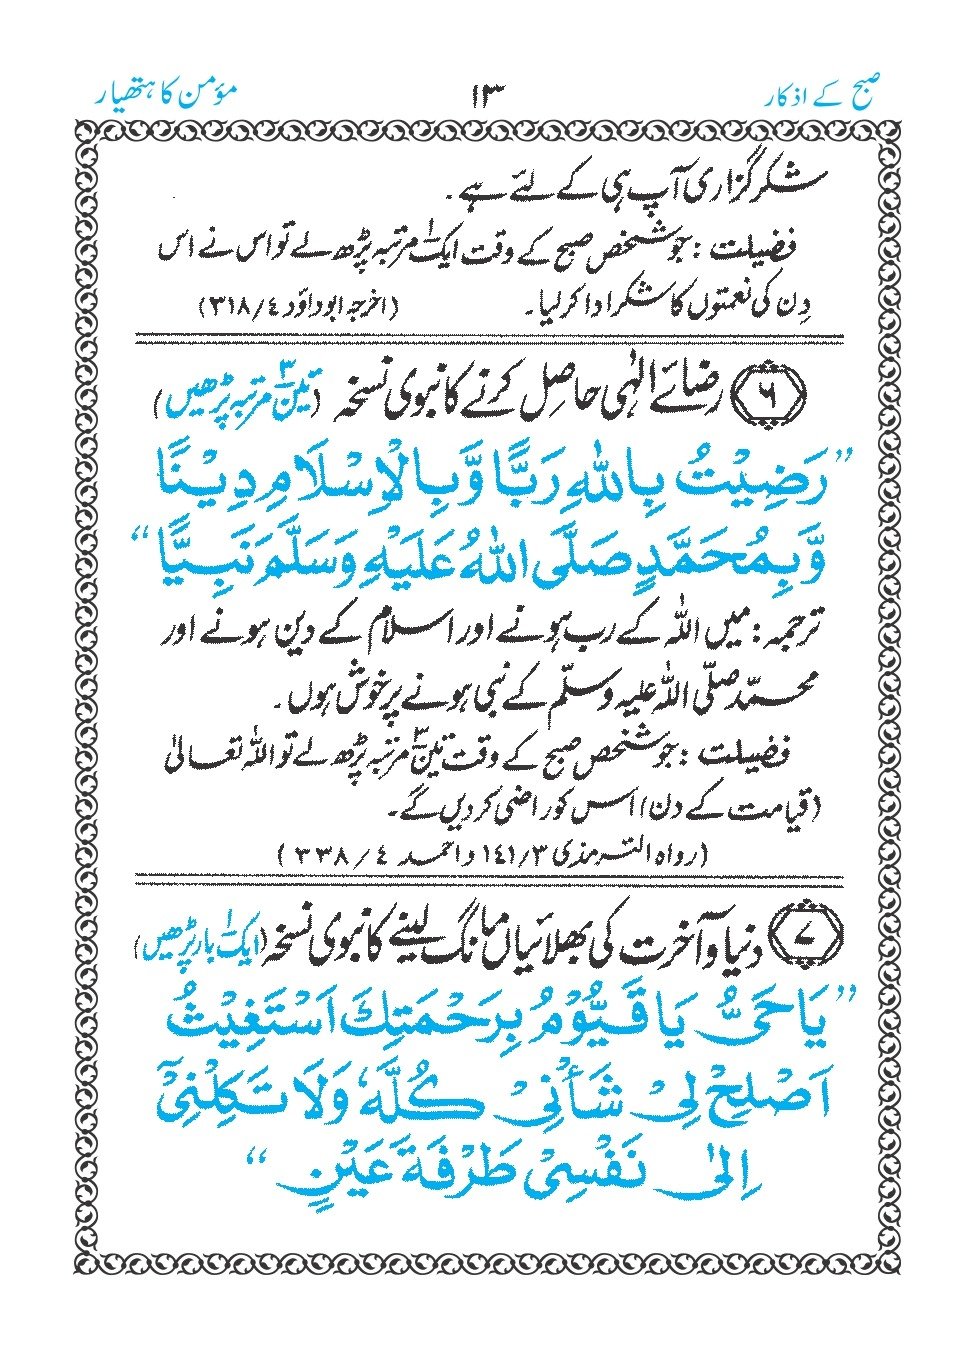 صبح کے اذکار ۱۳ مؤمن کا ہتھیار
شکر گزاری آپ ہی کے لئے ہے۔
فضیلت : جو شخص صبح کے وقت ایک مرتبہ پڑھ لے تو اس نے اس
دِن کی نعمتوں کا شکر ادا کر لیا۔ (اخرجہ ابو داؤد ٤/٣١٨)
٦ رضائے الٰہی حاصِل کرنے کا نبوی نسخہ (تین۳ مرتبہ پڑھیں)
”رَضِيْتُ بِاللّٰهِ رَبًّا وَّبِالْاِسْلَامِ دِيْنًا
وَّبِمُحَمَّدٍ صَلَّى اللّٰهُ عَلَيْهِ وَسَلَّمَ نَبِيًّا“
ترجمہ : میں اللّٰہ کے رب ہونے اور اسلام کے دین ہونے اور
محمّد صلّی اللّٰہ علیہ وسلّم کے نبی ہونے پر خوش ہوں۔
فضیلت : جو شخص صبح کے وقت تین۳ مرتبہ پڑھ لے تو اللّٰہ تعالیٰ
(قیامت کے دن) اس کو راضی کر دیں گے۔
(رواہ الترمذی ٣/١٤١ و احمد ٤/٣٣٨)
٧ دنیا و آخرت کی بھلائیاں مانگ لینے کا نبوی نسخہ (ایک۱ بار پڑھیں)
”يَا حَيُّ يَا قَيُّوْمُ بِرَحْمَتِكَ اَسْتَغِيْثُ
اَصْلِحْ لِيْ شَأْنِيْ كُلَّهٗ وَلَا تَكِلْنِيْٓ
اِلٰى نَفْسِيْ طَرْفَةَ عَيْنٍ“